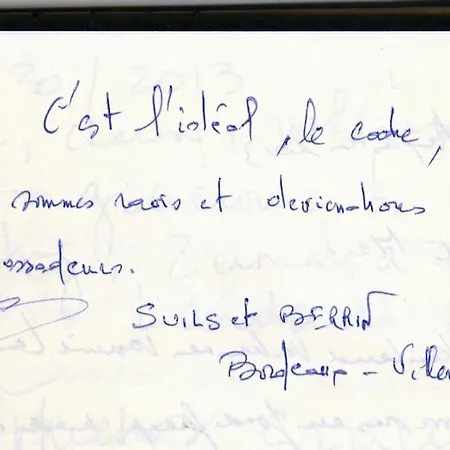 C'est l'idéal, le cadre,
sommes ravis et deviendrons
assadeurs.
SUILS et BERRIN
Bordeaux - Ville